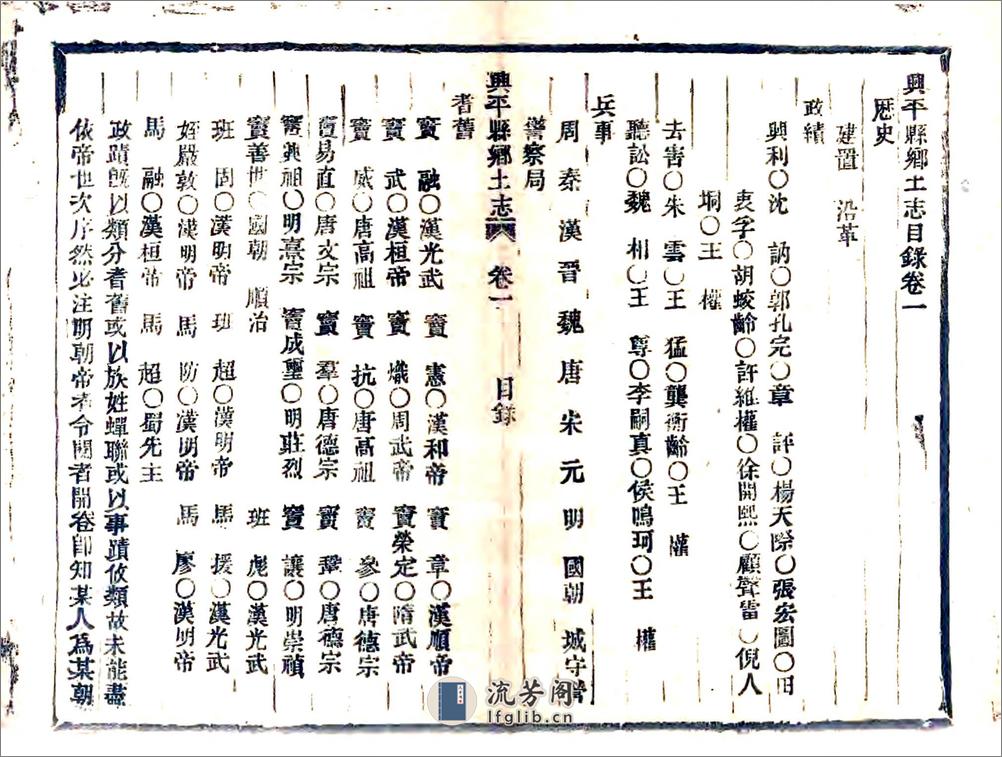 興平縣鄉土志目錄卷一
歷史
建置 沿革
政績
興利○沈 訥○郭孔完○章 評○楊天際○張宏圖○田
表孚○胡蛟齡○許維權○徐開熙○顧聲雷○倪人
垌○王 權
去害○朱 雲○王 猛○龔衡齡○王 權
聽訟○魏 相○王 尊○李嗣真○侯鳴珂○王 權
兵事
周 秦 漢 晉 魏 唐 宋 元 明 國朝 城守營
警察局
興平縣鄉土志 卷一 目錄
耆舊
竇 融○漢光武 竇 憲○漢和帝 竇 章○漢順帝
竇 武○漢桓帝 竇 熾○周武帝 竇榮定○隋武帝
竇 威○唐高祖 竇 抗○唐高祖 竇 參○唐德宗
竇易直○唐文宗 竇 羣○唐德宗 竇 鞏○唐德宗
竇興祖○明熹宗 竇成璽○明莊烈 竇 讓○明崇禎
竇善世○國朝 順治 班 彪○漢光武
班 固○漢明帝 班 超○漢明帝 馬 援○漢光武
姪嚴敦○漢明帝 馬 防○漢明帝 馬 廖○漢明帝
馬 融○漢桓帝 馬 超○蜀先主
政蹟既以類分耆舊或以族姓蟬聯或以事蹟攸類故未能盡
依帝世次序然必注明朝帝者令閱者開卷即知某人為某朝
流芳閣
lfglib.cn